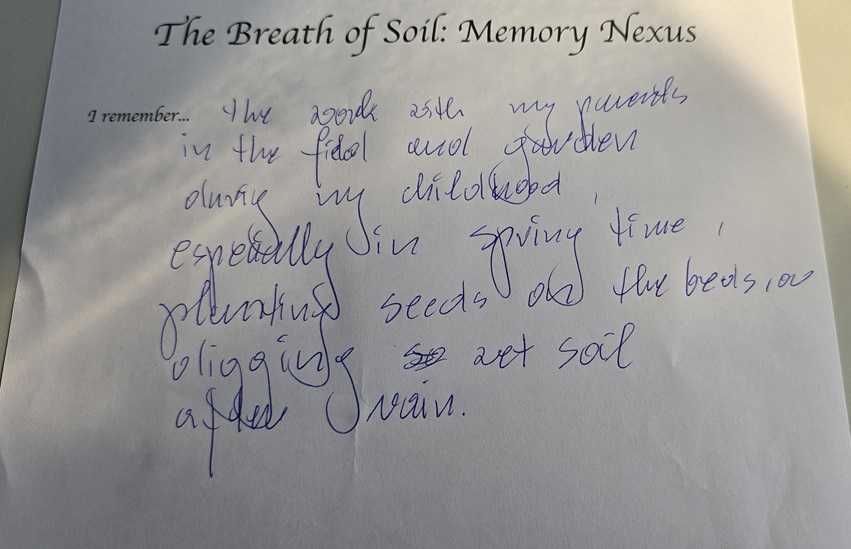 The Breath of Soil: Memory Nexus
I remember... the work with my parents
in the field and garden
during my childhood,
especially in spring time,
planting seeds on the beds, or
digging wet soil
after rain.